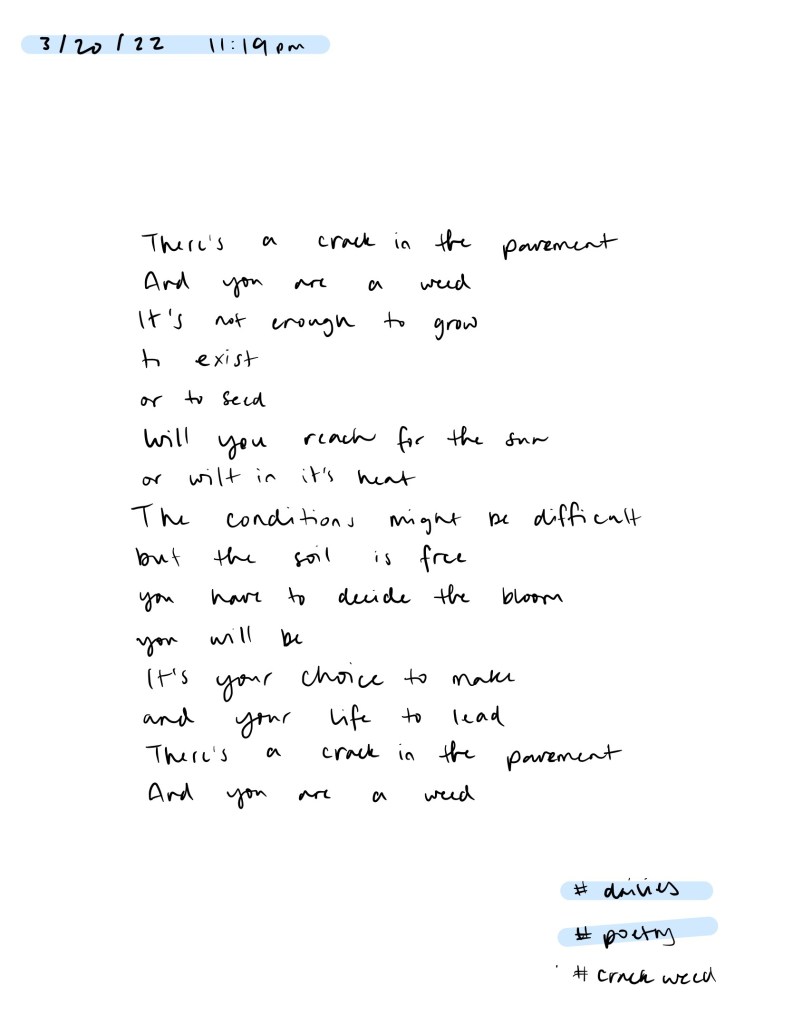 3/20/22 11:19pm
There's a crack in the pavement
And you are a weed
It's not enough to grow
to exist
or to seed
Will you reach for the sun
or wilt in it's heat
The conditions might be difficult
but the soil is free
you have to decide the bloom
you will be
It's your choice to make
and your life to lead
There's a crack in the pavement
And you are a weed
# dailies
# poetry
# crack weed